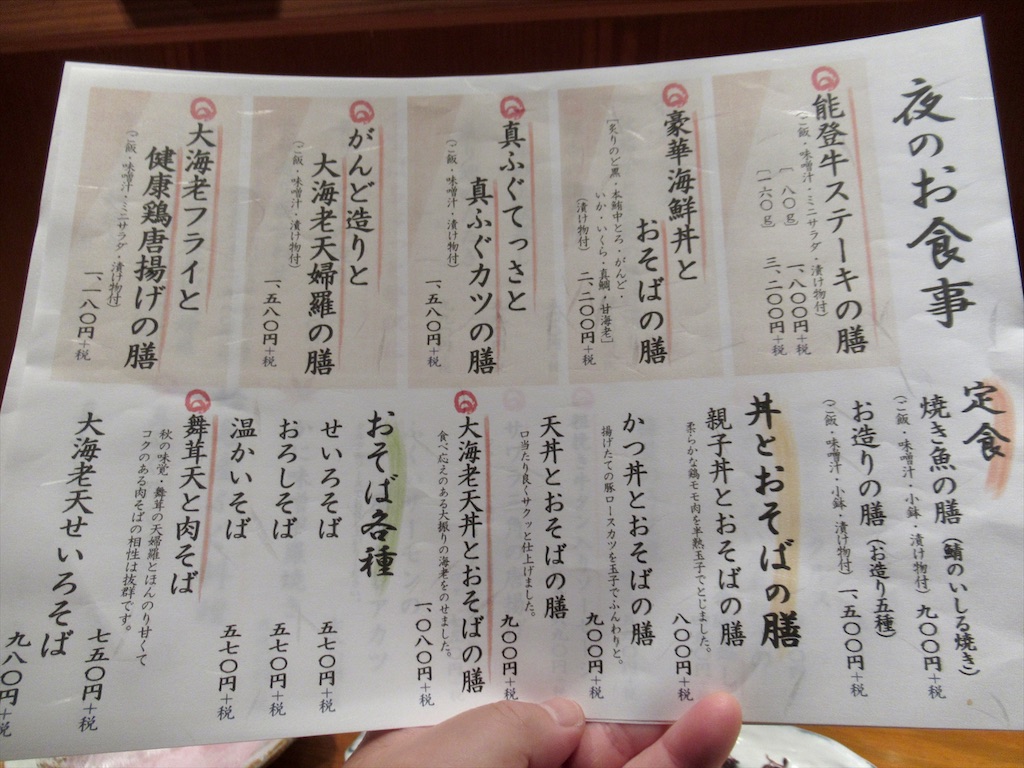 夜のお食事
能登牛ステーキの膳
(ご飯・味噌汁・ミニサラダ・漬け物付)
〔八〇g〕 一、八〇〇円+税
〔一六〇g〕 三、二〇〇円+税
豪華海鮮丼と
おそばの膳
〔炙りのど黒・本鮪中とろ・がんど・
いか・いくら・真鯛・甘海老〕
(漬け物付) 二、二〇〇円+税
真ふぐてっさと
真ふぐカツの膳
(ご飯・味噌汁・漬け物付)
一、五八〇円+税
がんど造りと
大海老天婦羅の膳
(ご飯・味噌汁・漬け物付)
一、五八〇円+税
大海老フライと
健康鶏唐揚げの膳
(ご飯・味噌汁・ミニサラダ・漬け物付)
一、一八〇円+税
定食
焼き魚の膳(鯖のいしる焼き)
(ご飯・味噌汁・小鉢・漬け物付) 九〇〇円+税
お造りの膳(お造り五種)
(ご飯・味噌汁・小鉢・漬け物付) 一、五〇〇円+税
丼とおそばの膳
親子丼とおそばの膳
柔らかな鶏モモ肉を半熟玉子でとじました。
八〇〇円+税
かつ丼とおそばの膳
揚げたての豚ロースカツを玉子でふんわりと。
九〇〇円+税
天丼とおそばの膳
口当たり良くサクッと仕上げました。
九〇〇円+税
大海老天丼とおそばの膳
食べ応えのある大振りの海老をのせました。
一、〇八〇円+税
おそば各種
せいろそば 五七〇円+税
おろしそば 五七〇円+税
温かいそば 五七〇円+税
舞茸天と肉そば
秋の味覚・舞茸の天婦羅とほんのり甘くて
コクのある肉そばの相性は抜群です。
七五〇円+税
大海老天せいろそば
九八〇円+税